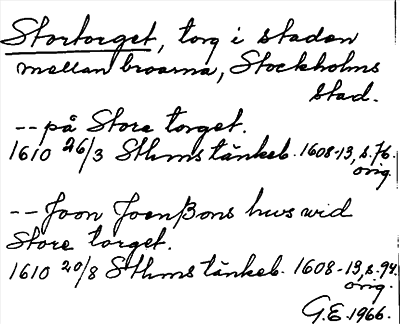 Stortorget, torg i staden
mellan broarna, Stockholms
stad.
-- på Store torget.
1610 26/3 Sthms tänkeb. 1608-13, s. 76.
orig.
-- Joon Joenßons hus wid
Store torget.
1610 20/8 Sthms tänkeb. 1608-13, s. 94.
orig.
G.E. 1966.